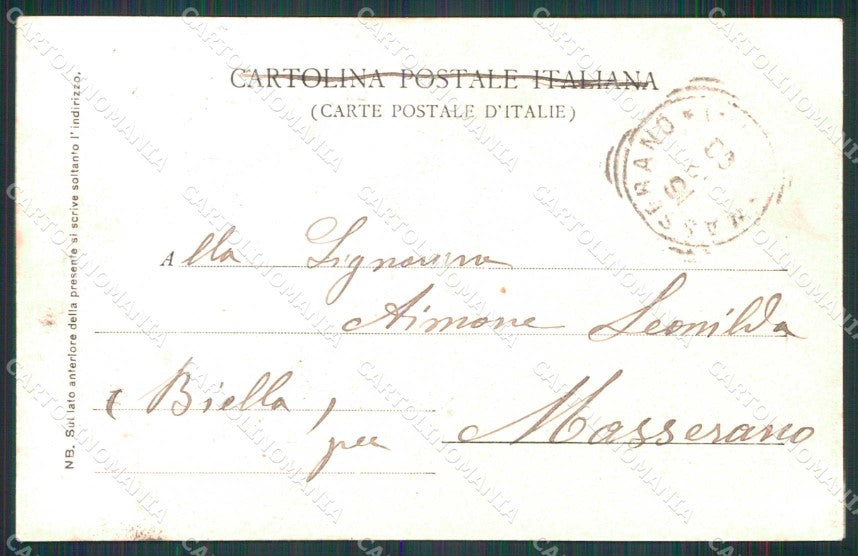 CARTOLINA POSTALE ITALIANA
(CARTE POSTALE D'ITALIE)
MASSERANO
Alla Signorina
Aimone Leonilda
(Biella, per Masserano
NB. Sul lato anteriore della presente si scrive soltanto l'indirizzo.
CARTOLINOMANIA